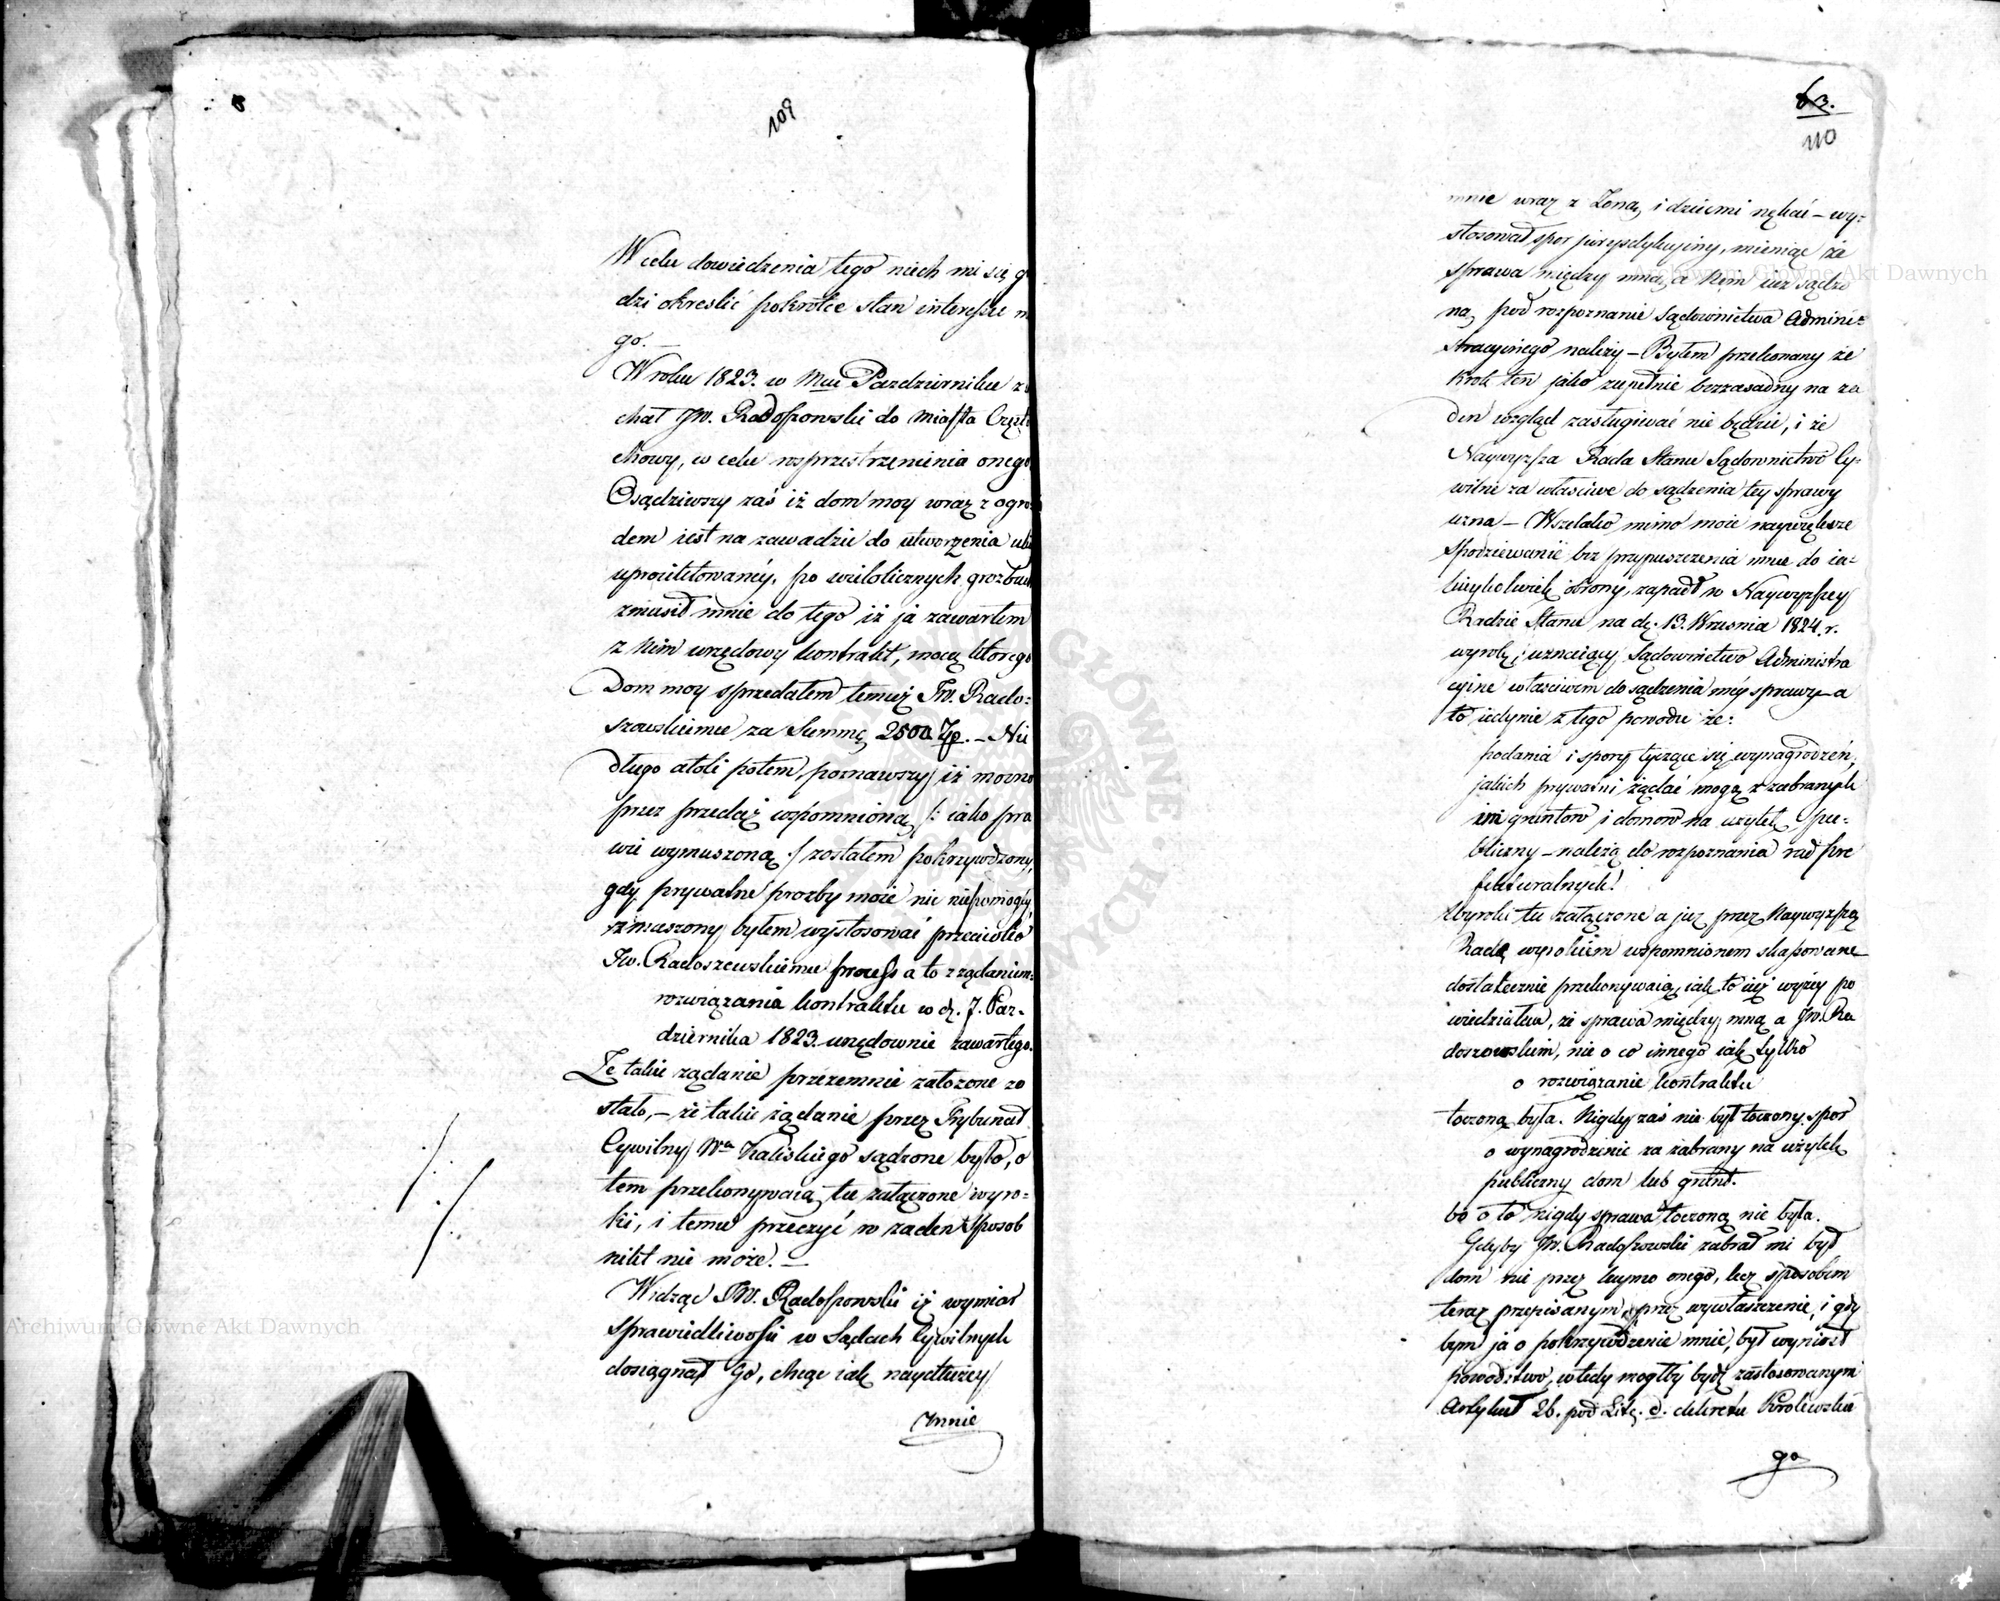 109
W celu dowiedzenia tego niech mi się g
dzi okreslić pokrótce stan interessu m
go. —
W roku 1823. w Mcu Pazdzierniku z
chał JW. Radoszowski do Miasta Częst
chowy, w celu rosprzestrzenienia onego
Osądziwszy zaś iż dom moy wraz z ogro
dem iest na zawadzie do utworzenia uli
uproiektowanéy, po wielolicznych grozbach
zmusił mnie do tego iż ja zawarłem
z Nim urzędowy kontrakt, mocą ktorego
Dom moy sprzedałem temuż JW. Rado-
szewskiemu za Summę 2500 Zp. — Nie
długo atoli potem, poznawszy iż mocno
przez przedaż wspomnioną /: iako pra
wie wymuszoną :/ zostałem pokrzywdzony,
gdy prywatne prozby moie nic niepomogły
zmuszony byłem wystosować przeciwko
JW. Radoszewskiemu process a to z ządaniem:
rozwiązania kontraktu w d. 7. Paz-
dziernika 1823. urzędownie zawartego.
Ze takie ządanie przezemnie założone zo
stało, — że takie żądanie przez Trybunał
Cywilny Wa Kaliskiego sądzone było, o
tem przekonywaią tu załączone wyro-
ki, i temu przeczyć w zaden sposob
nikt nie może. —
Widząc JW. Radoszowski iż wymiar
sprawiedliwości w Sądach Cywilnych
dosiągnął Go, chcąc iak naydłużey
Mnie
63.
110
mnie wraz z Zoną i dziecmi nękać — wy-
stosował spor jurysdykcyiny, mieniąc że
sprawa między mną a Nim iuż sądzo
na, pod rozpoznanie Sądownictwa Admini-
stracyinego należy — Byłem przekonany że
Krok ten jako zupełnie bezzasadny na ża
den wzgląd zasługiwać nie będzie, i że
Naywyższa Rada Stanu Sądownictwo Cy-
wilne za właściwe do sądzenia tey sprawy
uzna — Wszelako mimo moie naywiększe
spodziewanie bez przypuszczenia mnie do ia-
kieykolwiek obrony, zapadł w Naywyższey
Radzie Stanu na d. 13. Wrzesnia 1824. r.
wyrok, uznaiący Sądownictwo Administra
cyine właściwem do sądzenia méy sprawy — a
to iedynie z tego powodu że:
podania i spory tyczące się wynagrodzeń,
jakich prywatni żądać mogą z zabranych
im gruntow i domow na użytek pu-
bliczny — należą do rozpoznania rad pre
fekturalnych!
Wyroki tu załączone a już przez Naywyższą
Radę wyrokiem wspomnionem skassowane
dostatecznie przekonywaią, iak to iuż wyżey po
wiedziałem, że sprawa między mną a JW. Ra
doszowskim, nie o co innego iak tylko
o rozwiązanie kontraktu
toczoną była. Nigdy zaś nie był toczony spor
o wynagrodzenie za zabrany na użytek
publiczny dom lub grunt.
bo o to nigdy sprawa toczoną nie była.
Gdyby JW. Radoszowski zabrał mi był
dom nie przez kupno onego, lecz sposobem
teraz przepisanym przez wywłaszczenie, i gdy
bym ja o pokrzywdzenie mnie, był wyniosł
powodztwo, wtedy mogłby bydź zastosowanym
Artykuł 26. pod Lit. d. dekretu Krolewskie
go
Archiwum Główne Akt Dawnych
Archiwum Główne Akt Dawnych